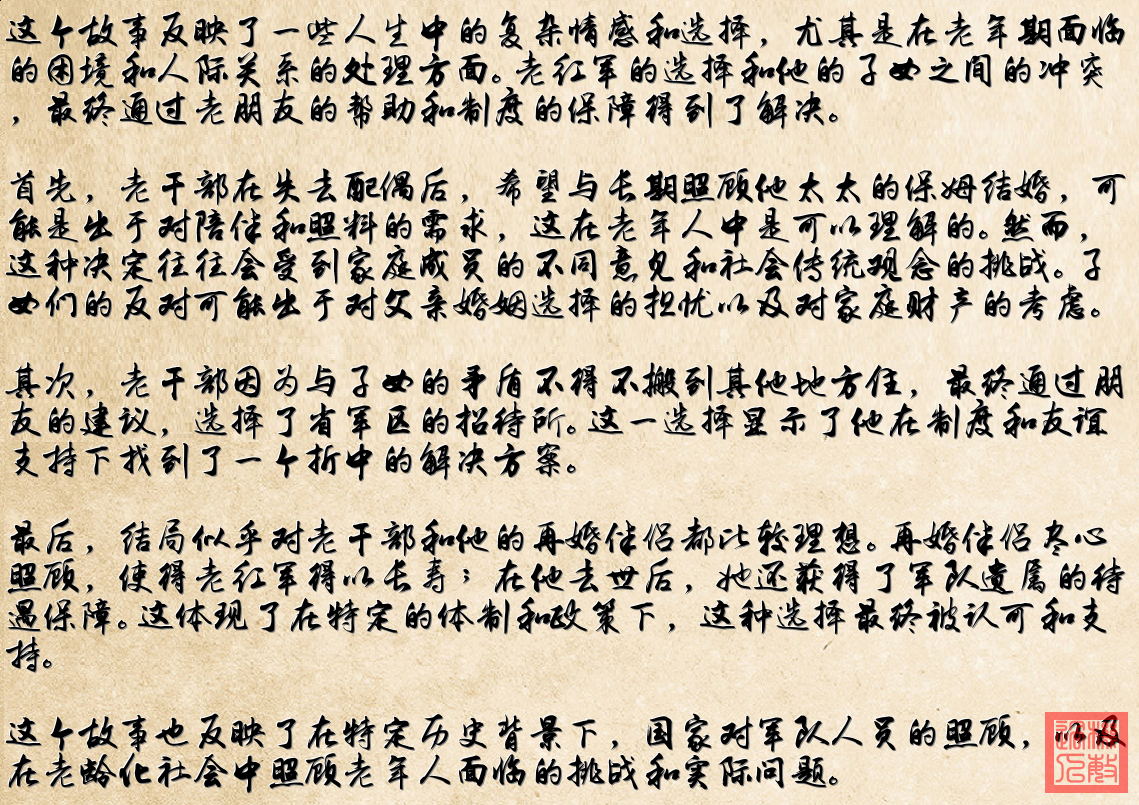 这个故事反映了一些人生中的复杂情感和选择，尤其是在老年期面临
的困境和人际关系的处理方面。老红军的选择和他的子女之间的冲突
，最终通过老朋友的帮助和制度的保障得到了解决。
首先，老干部在失去配偶后，希望与长期照顾他太太的保姆结婚，可
能是出于对陪伴和照料的需求，这在老年人中是可以理解的。然而，
这种决定往往会受到家庭成员的不同意见和社会传统观念的挑战。子
女们的反对可能出于对父亲婚姻选择的担忧以及对家庭财产的考虑。
其次，老干部因为与子女的矛盾不得不搬到其他地方住，最终通过朋
友的建议，选择了省军区的招待所。这一选择显示了他在制度和友谊
支持下找到了一个折中的解决方案。
最后，结局似乎对老干部和他的再婚伴侣都比较理想。再婚伴侣尽心
照顾，使得老红军得以长寿；在他去世后，她还获得了军队遗属的待
遇保障。这体现了在特定的体制和政策下，这种选择最终被认可和支
持。
这个故事也反映了在特定历史背景下，国家对军队人员的照顾，以及
在老龄化社会中照顾老年人面临的挑战和实际问题。